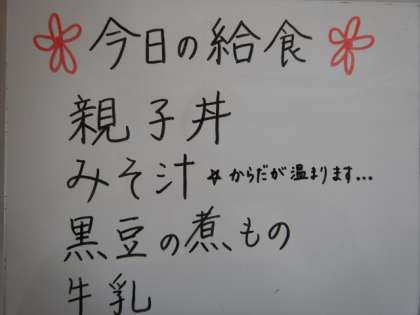 今日の給食
親子丼
みそ汁 ☆からだが温まります...
黒豆の煮もの
牛乳